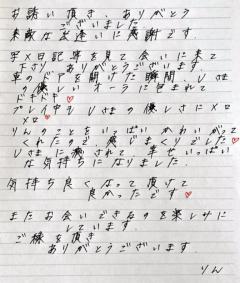 お誘い頂き、ありがとう
ございました
素敵な出逢いに感謝です
写メ日記等を見て会いに来て
下さり、ありがとうございます
車のドアを開けた瞬間、Uさま
の優しいオーラに包まれて
ドキドキ♥
プレイ中も、Uさまの優しさにメロ
メロ♥
りんのことをいっぱいかわいがって
くれたので、感じまくりでした♥
Uさまに癒されて、幸せいっぱい
な気持ちになりました
気持ち良くなって頂けて
良かったです♥
またお会いできるのを楽しみに
しています
ご縁を頂き
ありがとうございます
りん